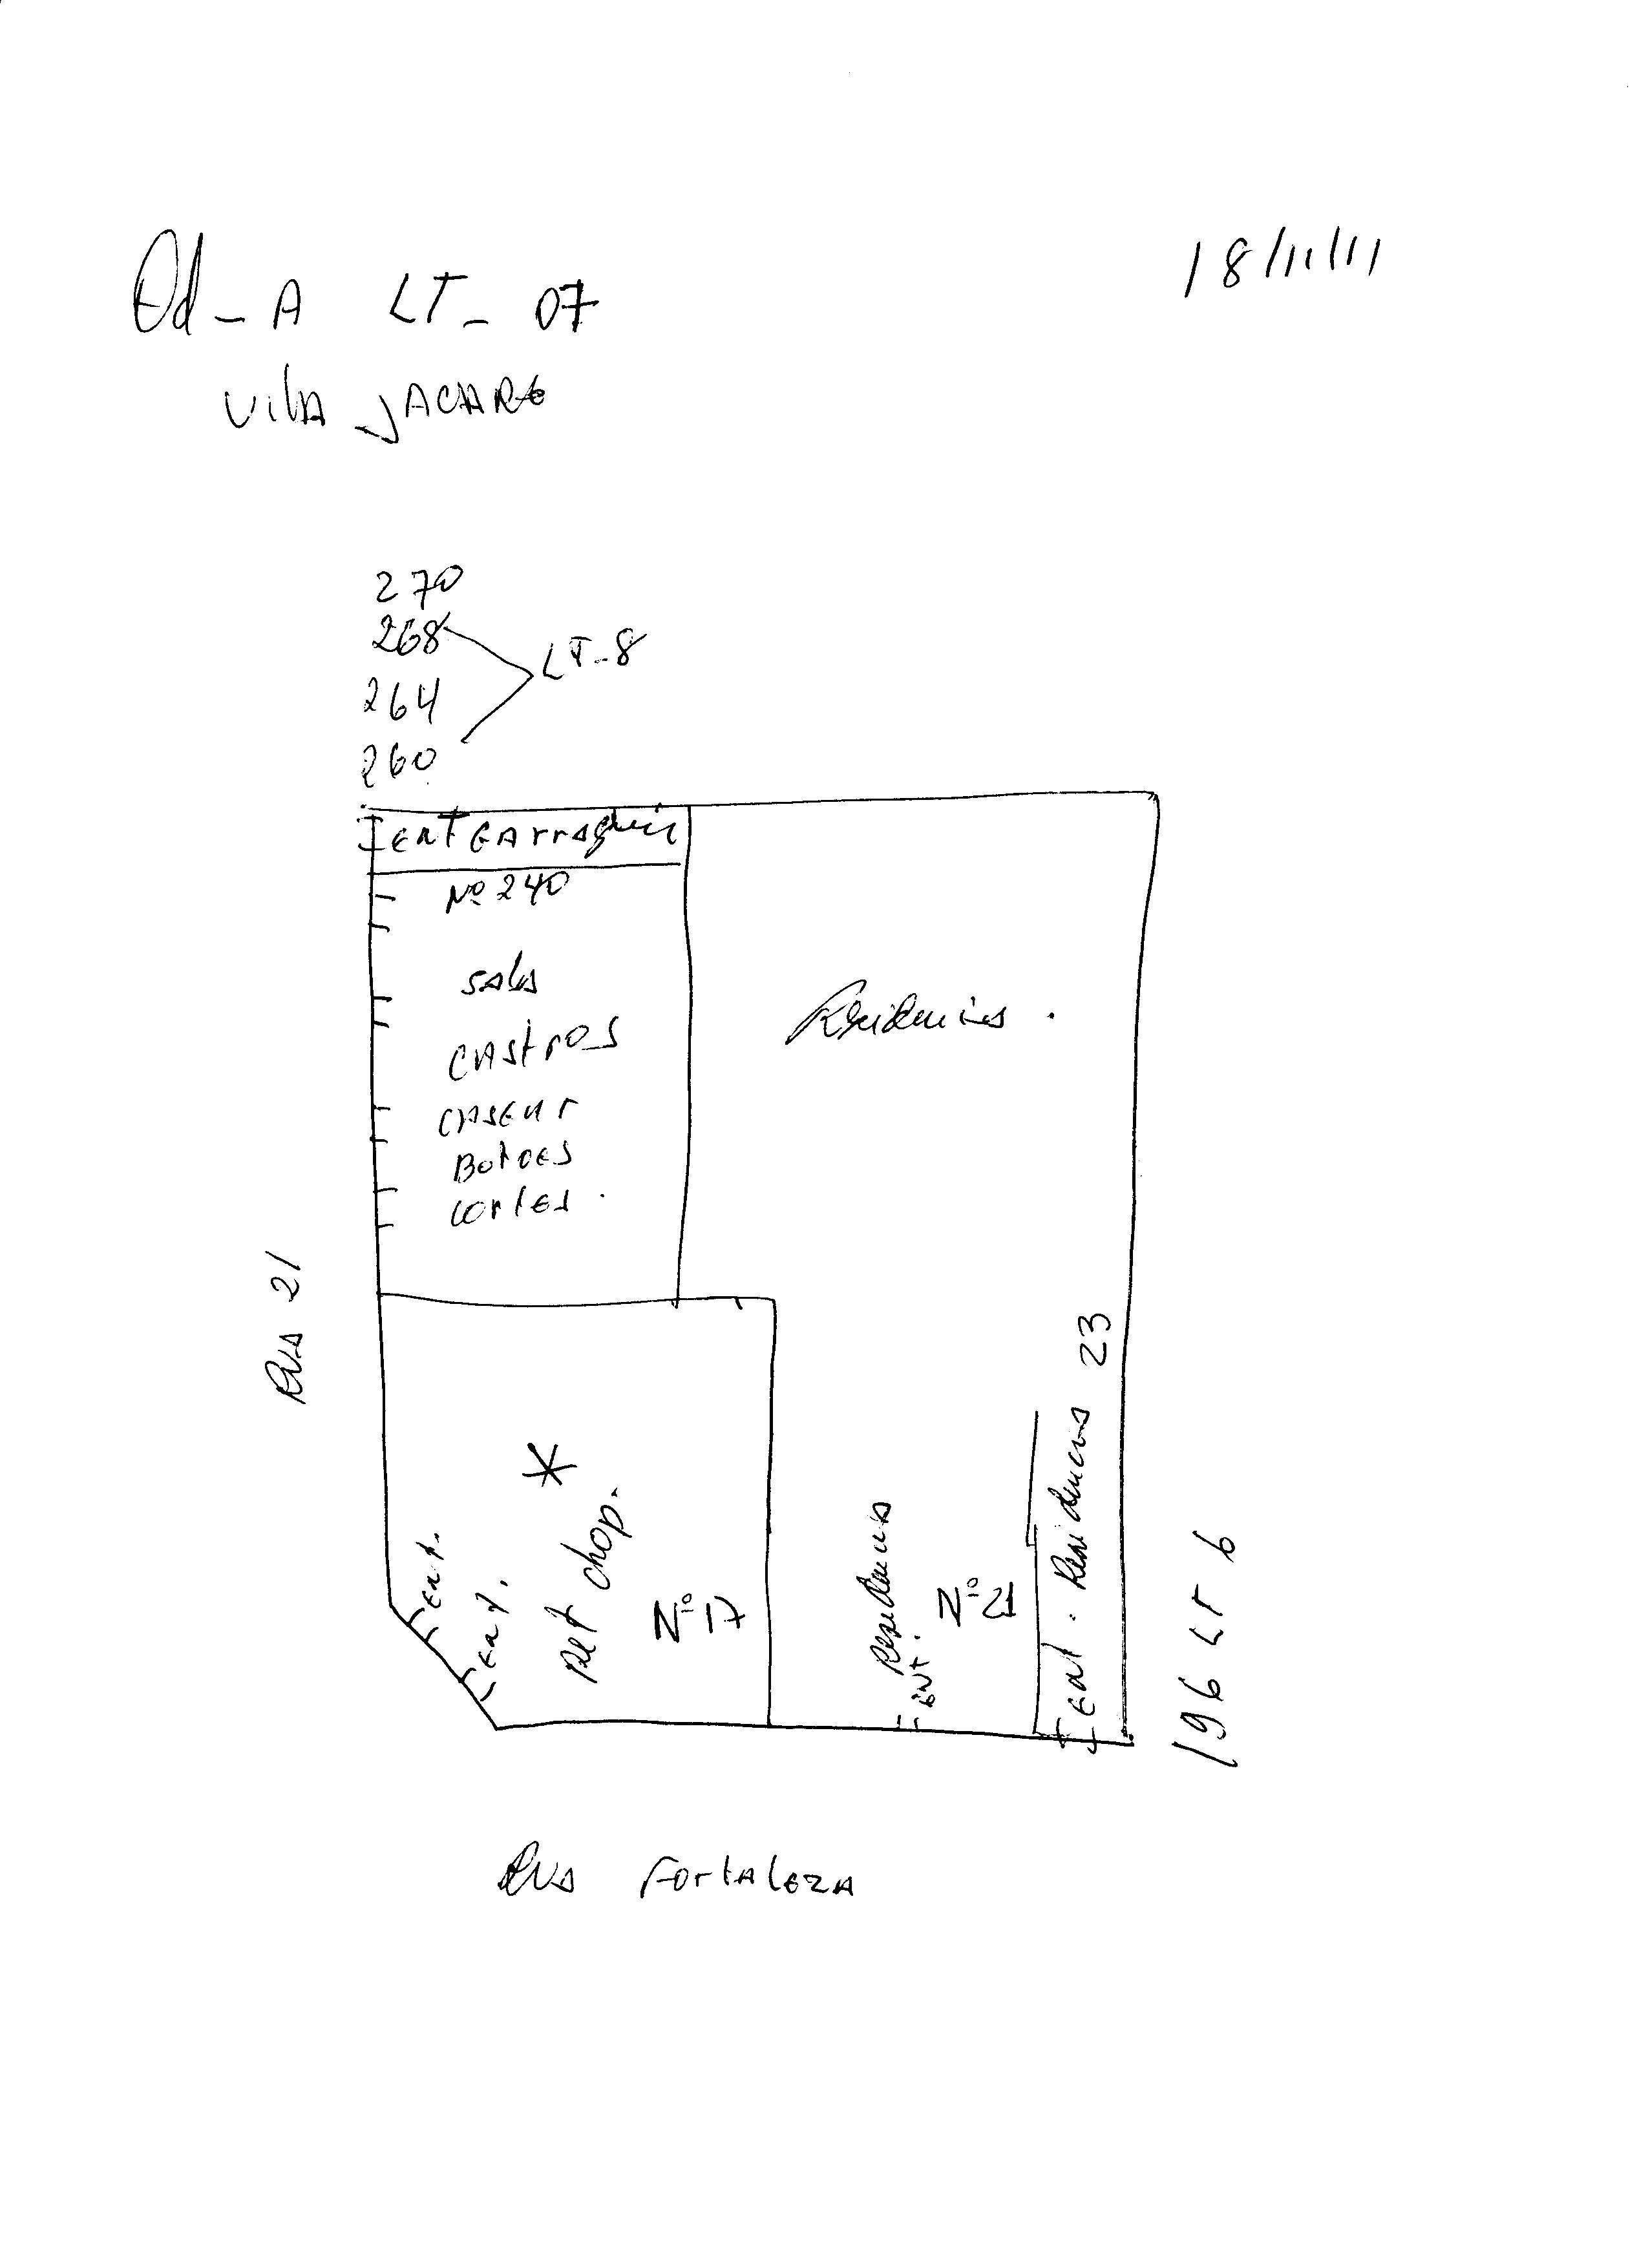 Qd - A LT - 07
18/11/11
VilA JACARE
270
268
LT-8
264
260
ENT GArragem
Nº 240
sala
CAstros
CASEAr
Botoes
cortes.
Residencias.
Rua 21
*
ent.
ent.
Pet chop.
Nº 17
Residencia
ENT.
Nº 21
ent. Residencia 23
196 LT 6
Rua FortalezA